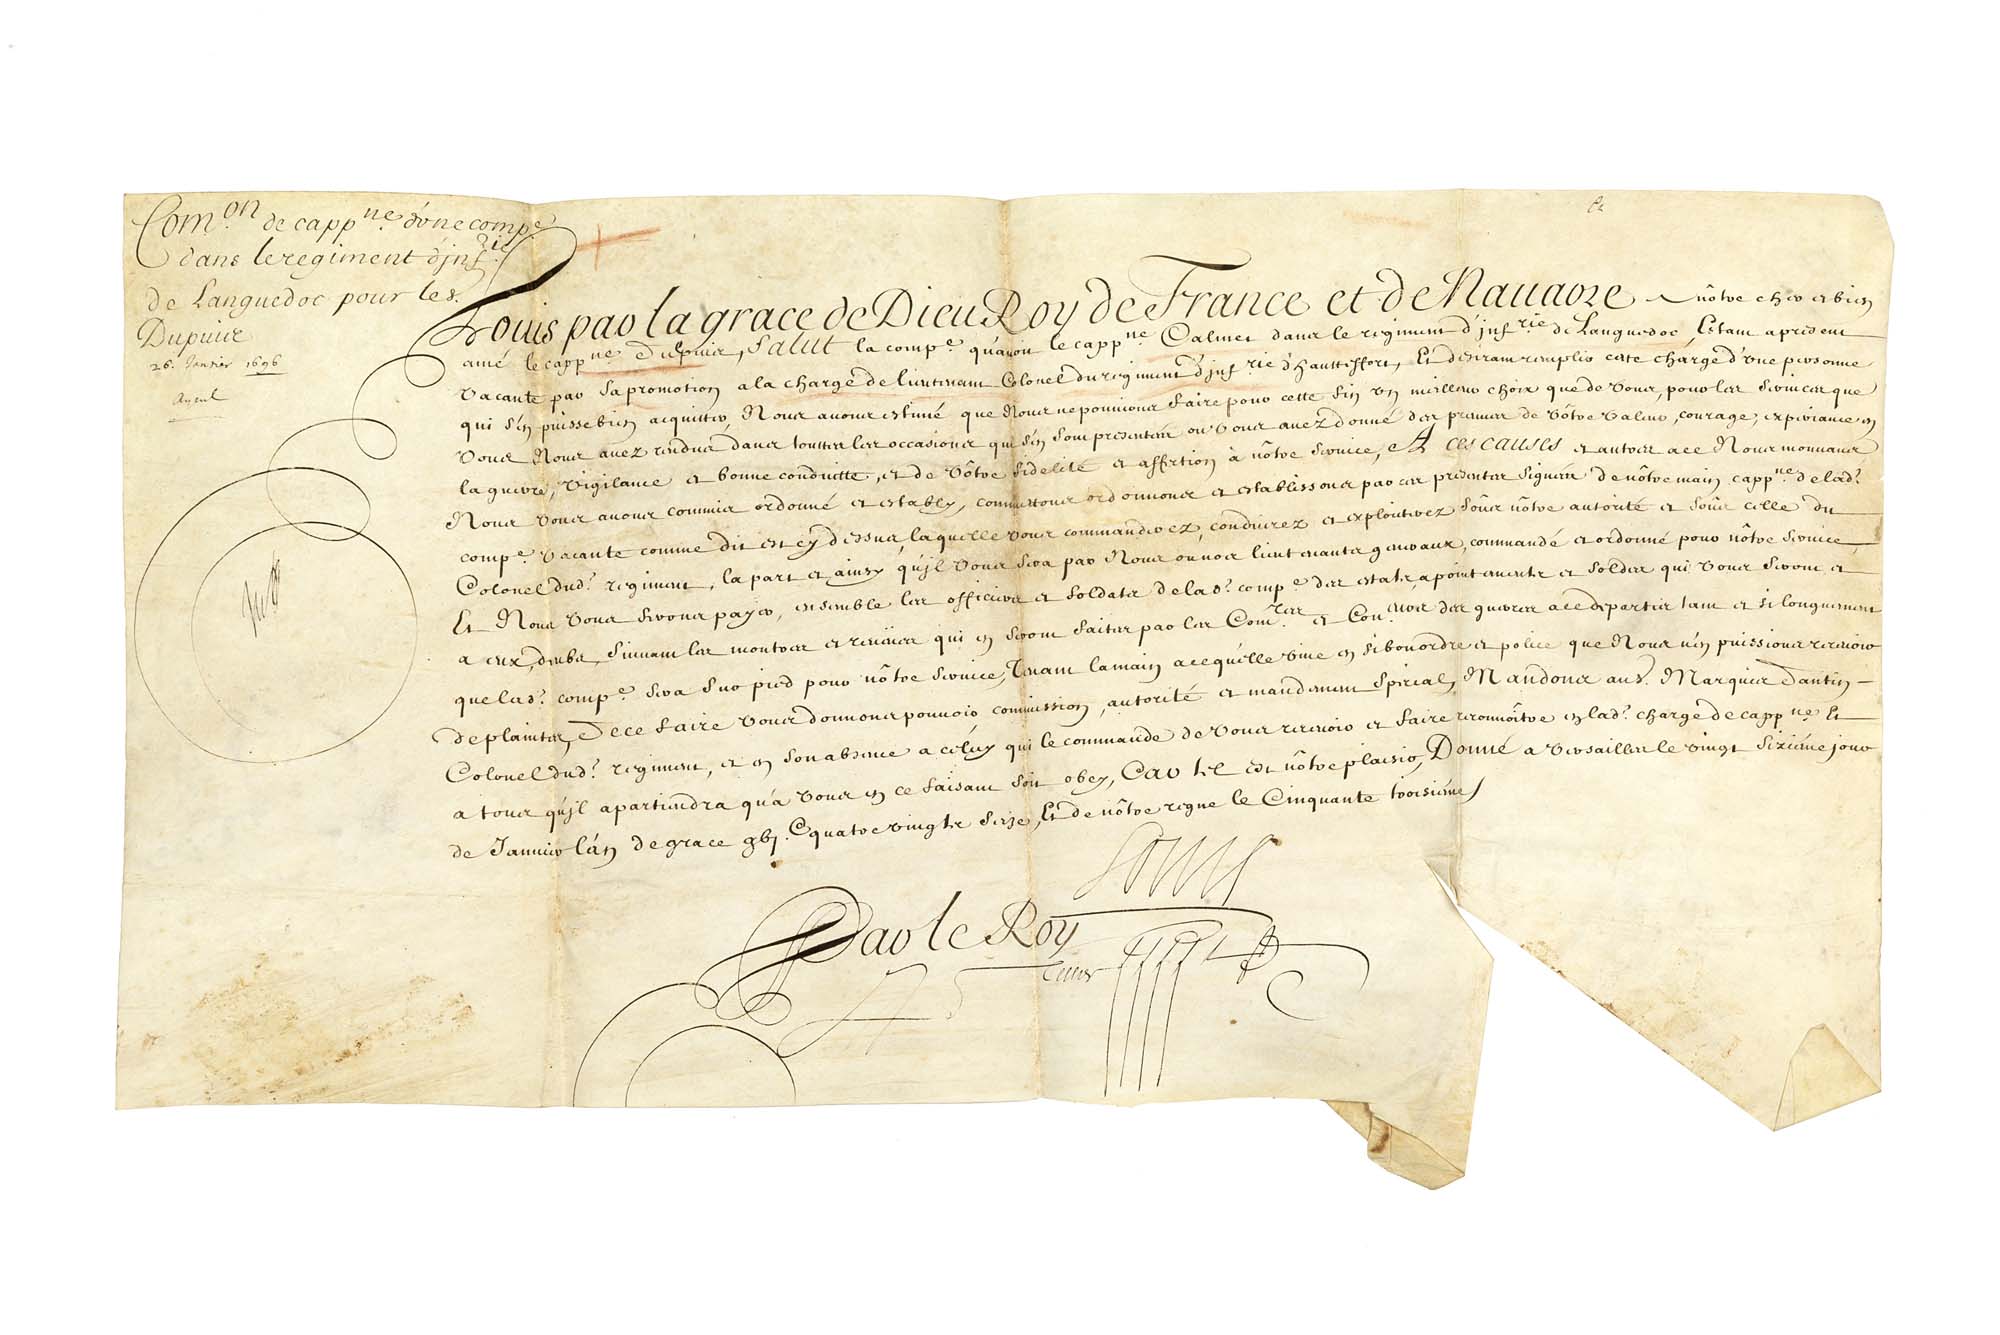 Com.on de capp.ne d'vne comp.e
dans le regiment d'jnf.rie
de Languedoc pour le s.
Dupuis
26. Janvier 1696
Louis par la grace de Dieu Roy de France et de Nauarre A nôtre cher et bien
amé le capp.ne Dupuis, Salut la comp.e qu'auoit le capp.ne Calmet dans le regiment d'jnf.rie de Languedoc, Estant apresent
vacante par sa promotion a la charge de lieutenant Colonel du regiment d'jnf.rie d'hauttefort, Et desirant remplir cette charge d'vne personne
qui s'en puisse bien acquitter, Nous auons estimé que Nous ne pouuions faire pour cette fin vn meilleur choix que de vous, pour les seruices que
vous Nous auez rendus dans touttes les occasions qui s'en sont presentées ou vous auez donné des preuues de vôtre valeur, courage, experiance en
la guerre, vigilance et bonne conduitte, et de vôtre fidelité et affection à nôtre seruice, A ces causes et autres a ce Nous mouuans
Nous vous auons commis ordonné et estably, commettons ordonnons et establissons par ces presentes signées de nôtre main capp.ne de lad.
comp.e vacante comme dit est cy dessus, laquelle vous commanderez, conduirez et exploiterez soûs nôtre autorité et soûs celle du
Colonel dud. regiment, la part et ainsy qu'jl vous sera par Nous ou nos lieutenants generaux, commandé et ordonné pour nôtre seruice,
Et Nous vous ferons payer, ensemble les officiers et soldats de lad. comp.e des estats, apointements et soldes qui vous seront et
a eux, deubs, suiuant les montres et reueües qui en seront faites par les Com.res et Con.eurs des guerres a ce departis tant et si longuement
que lad. comp.e sera sur pied pour nôtre seruice, Tenant la main a ce qu'elle viue en si bon ordre et police que Nous n'en puissions receuoir
de plaintes, De ce faire vous donnons pouuoir, commission, autorité et mandement special, Mandons au s. Marquis Dantin
Colonel dud. regiment, et en son absence a celuy qui le commande de vous receuoir et faire reconnoître en lad. charge de capp.ne Et
a tous qu'jl apartiendra qu'a vous en ce faisant soit obey, Car tel est nôtre plaisir, Donné a Versailles le vingt sixiéme jour
de Januier l'an de grace gbj. C quatre vingts seize, Et de nôtre regne le Cinquante troisiéme
Louis
Par le Roy